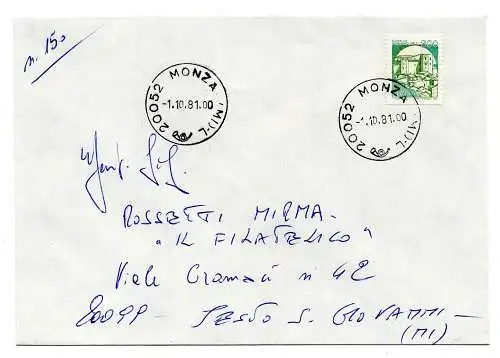 n. 150
20052 MONZA (MI)-L
-1.10.81.00
20052 MONZA (MI)-L
-1.10.81.00
ROSSETTI MIRMA -
"IL FILATELICO"
Viale Gramsci n 42
20099 - SESTO S. GIOVANNI -
(MI)